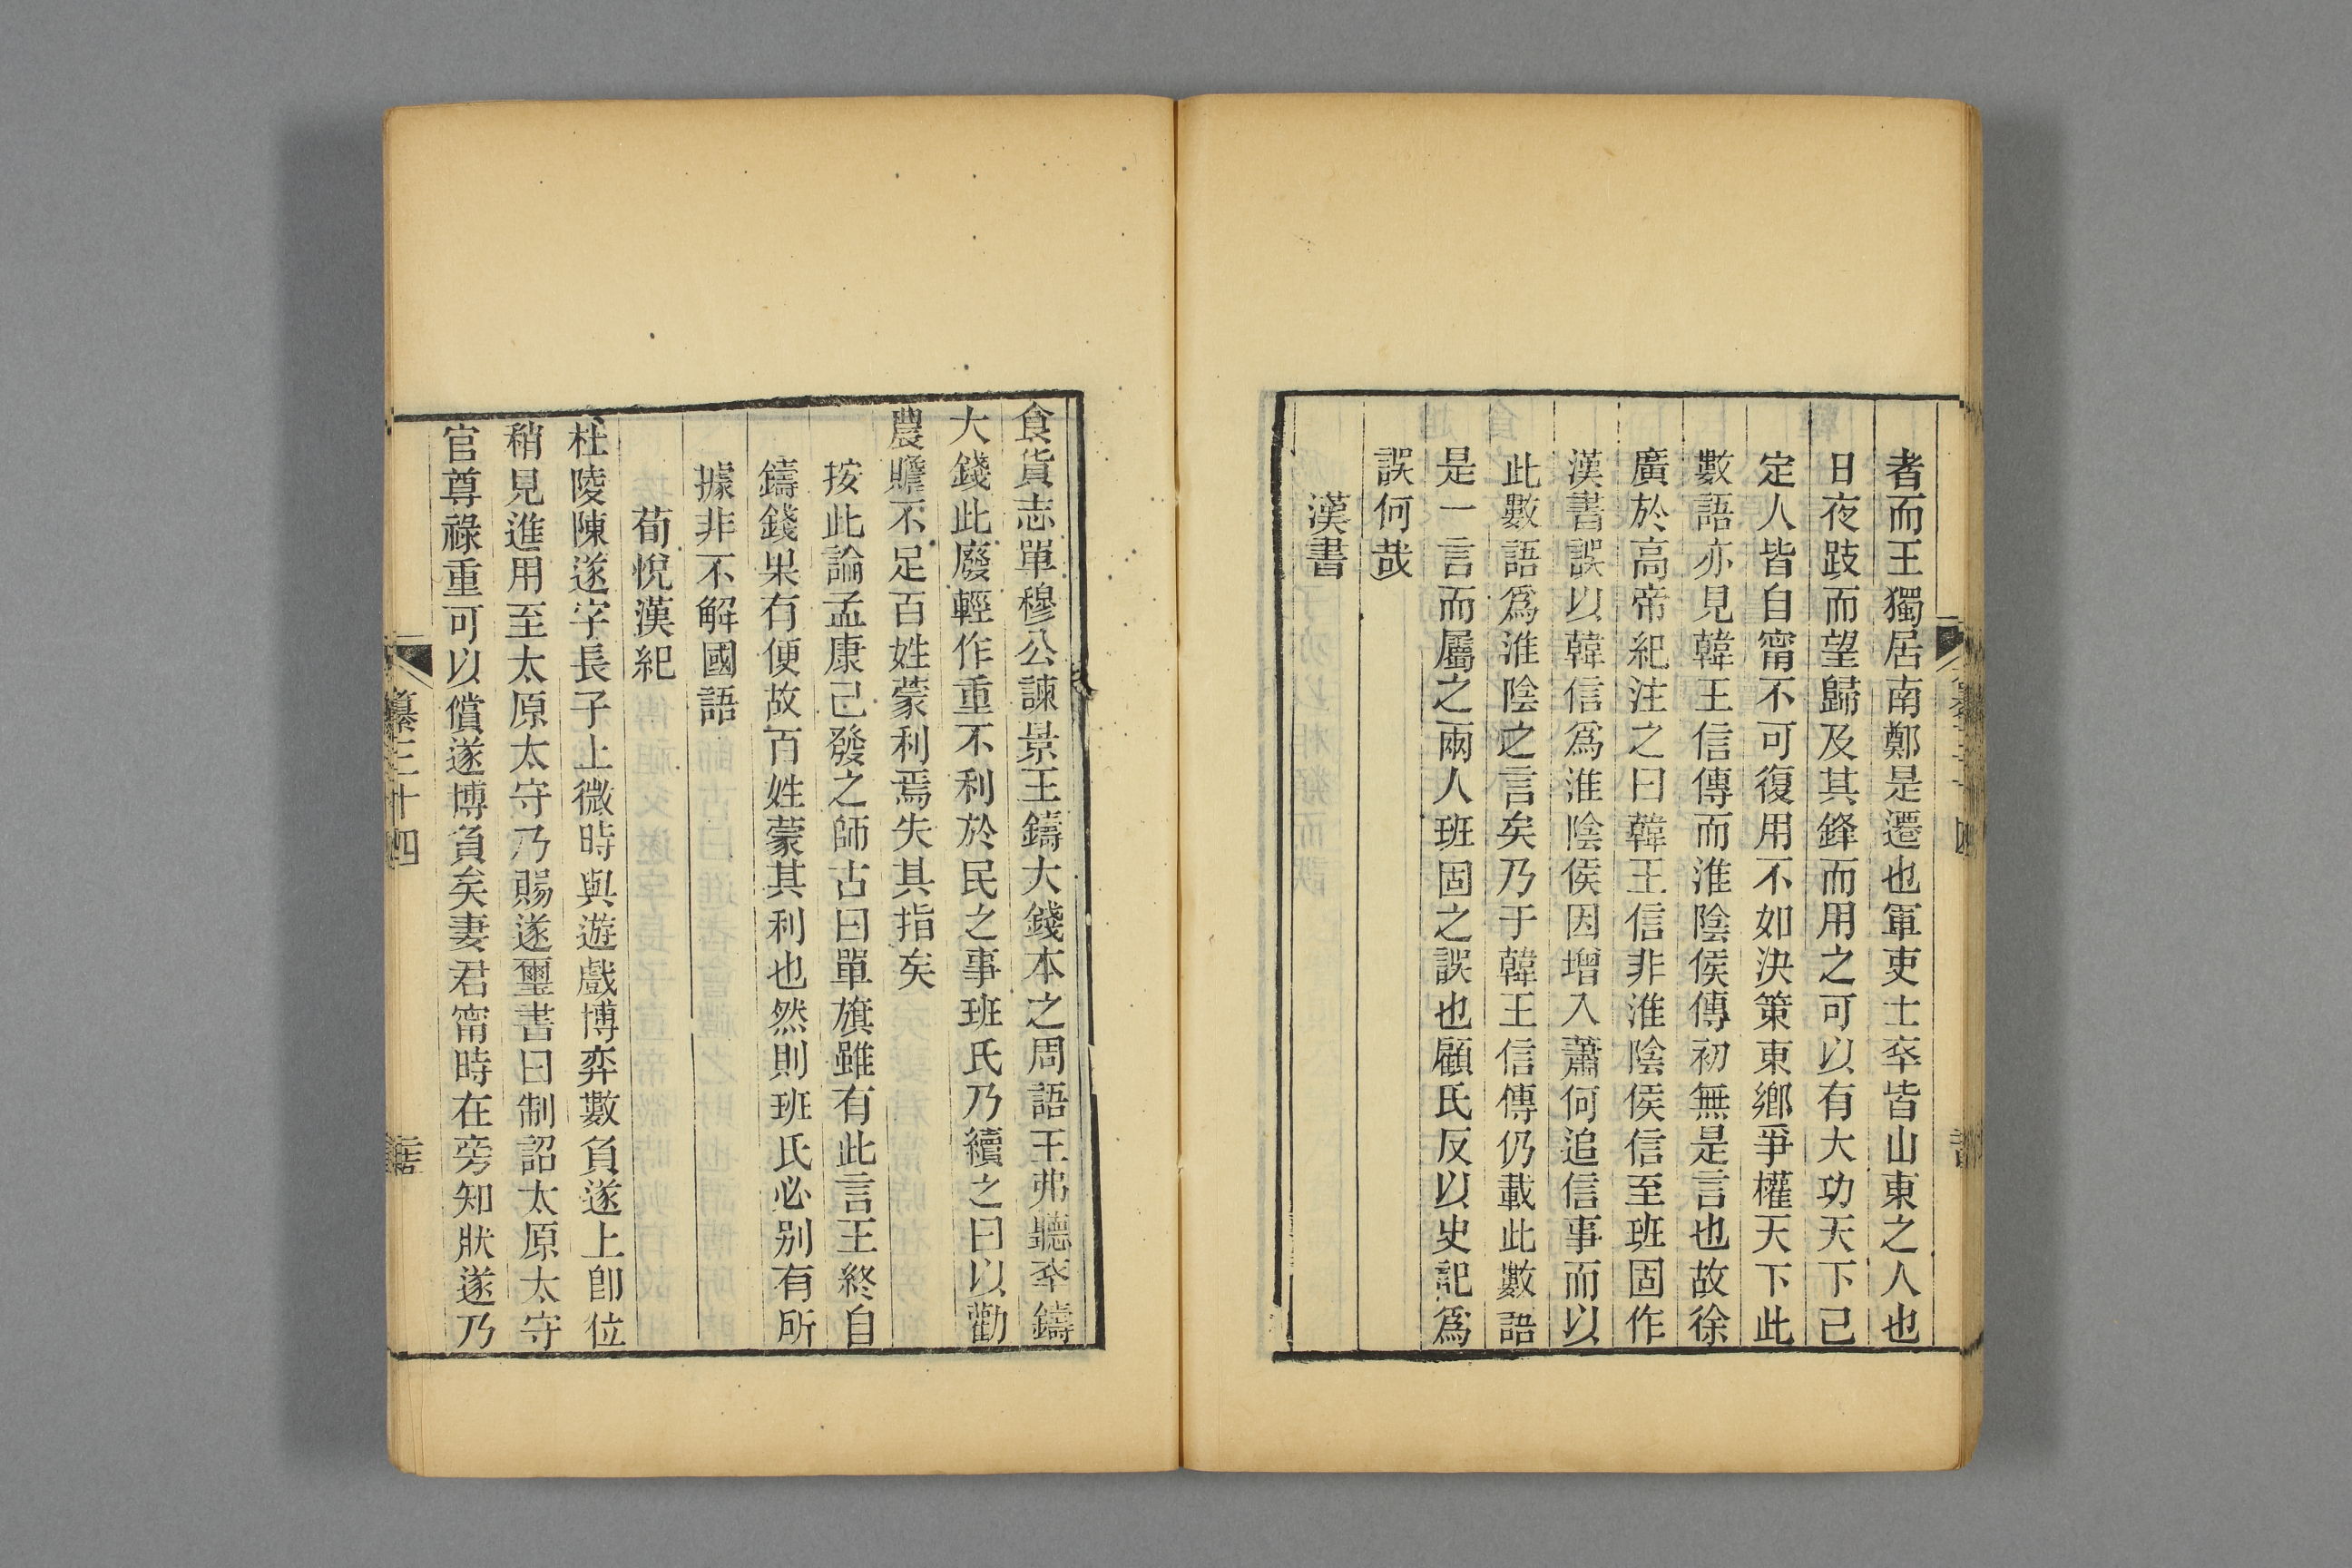 者而王獨居南鄭是遷也軍吏士卒皆山東之人也
日夜跂而望歸及其鋒而用之可以有大功天下已
定人皆自甯不可復用不如決策東鄉爭權天下此
數語亦見韓王信傳而淮陰侯傳初無是言也故徐
廣於高帝紀注之曰韓王信非淮陰侯信至班固作
漢書誤以韓信爲淮陰侯因增入蕭何追信事而以
此數語爲淮陰之言矣乃于韓王信傳仍載此數語
是一言而屬之兩人班固之誤也顧氏反以史記爲
誤何哉
漢書
食貨志單穆公諫景王鑄大錢本之周語王弗聽卒鑄
大錢此廢輕作重不利於民之事班氏乃續之曰以勸
農贍不足百姓蒙利焉失其指矣
按此論孟康已發之師古曰單旗雖有此言王終自
鑄錢果有便故百姓蒙其利也然則班氏必别有所
據非不解國語
荀悅漢紀
杜陵陳遂字長子上微時與遊戲博弈數負遂上卽位
稍見進用至太原太守乃賜遂璽書曰制詔太原太守
官尊祿重可以償遂博負矣妻君甯時在旁知狀遂乃
纂三十四